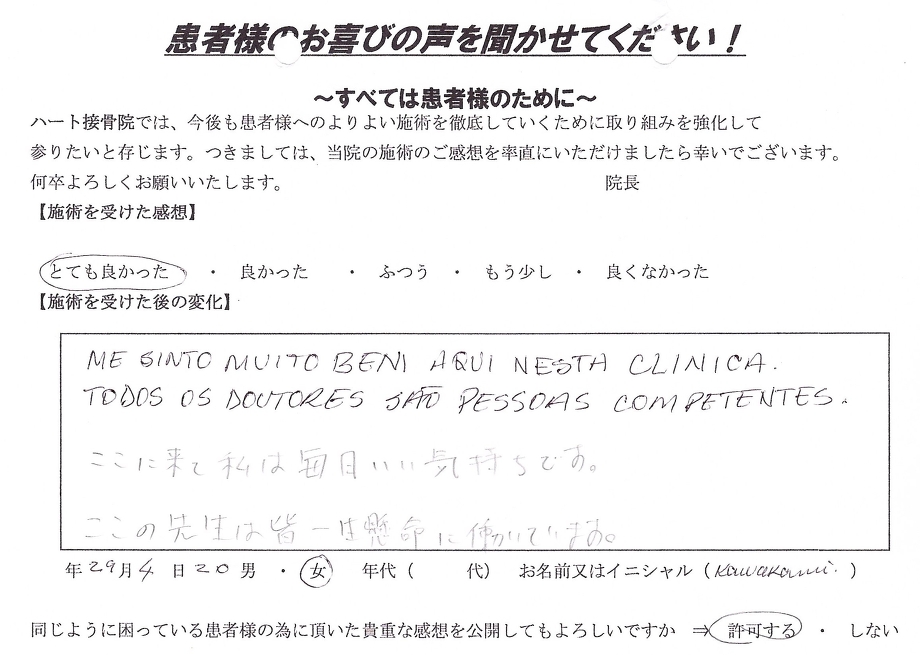 患者様のお喜びの声を聞かせてください！
～すべては患者様のために～
ハート接骨院では、今後も患者様へのよりよい施術を徹底していくために取り組みを強化して
参りたいと存じます。つきましては、当院の施術のご感想を率直にいただけましたら幸いでございます。
何卒よろしくお願いいたします。 院長
【施術を受けた感想】
とても良かった ・ 良かった ・ ふつう ・ もう少し ・ 良くなかった
【施術を受けた後の変化】
ME SINTO MUITO BEM AQUI NESTA CLINICA.
TODOS OS DOUTORES SÃO PESSOAS COMPETENTES.
ここに来て私は毎日いい気持ちです。
ここの先生は皆一生懸命に働いています。
年 29 月 4 日 20 男 ・ 女 年代（ 代） お名前又はイニシャル（ Kawakami. ）
同じように困っている患者様の為に頂いた貴重な感想を公開してもよろしいですか ⇒ 許可する ・ しない